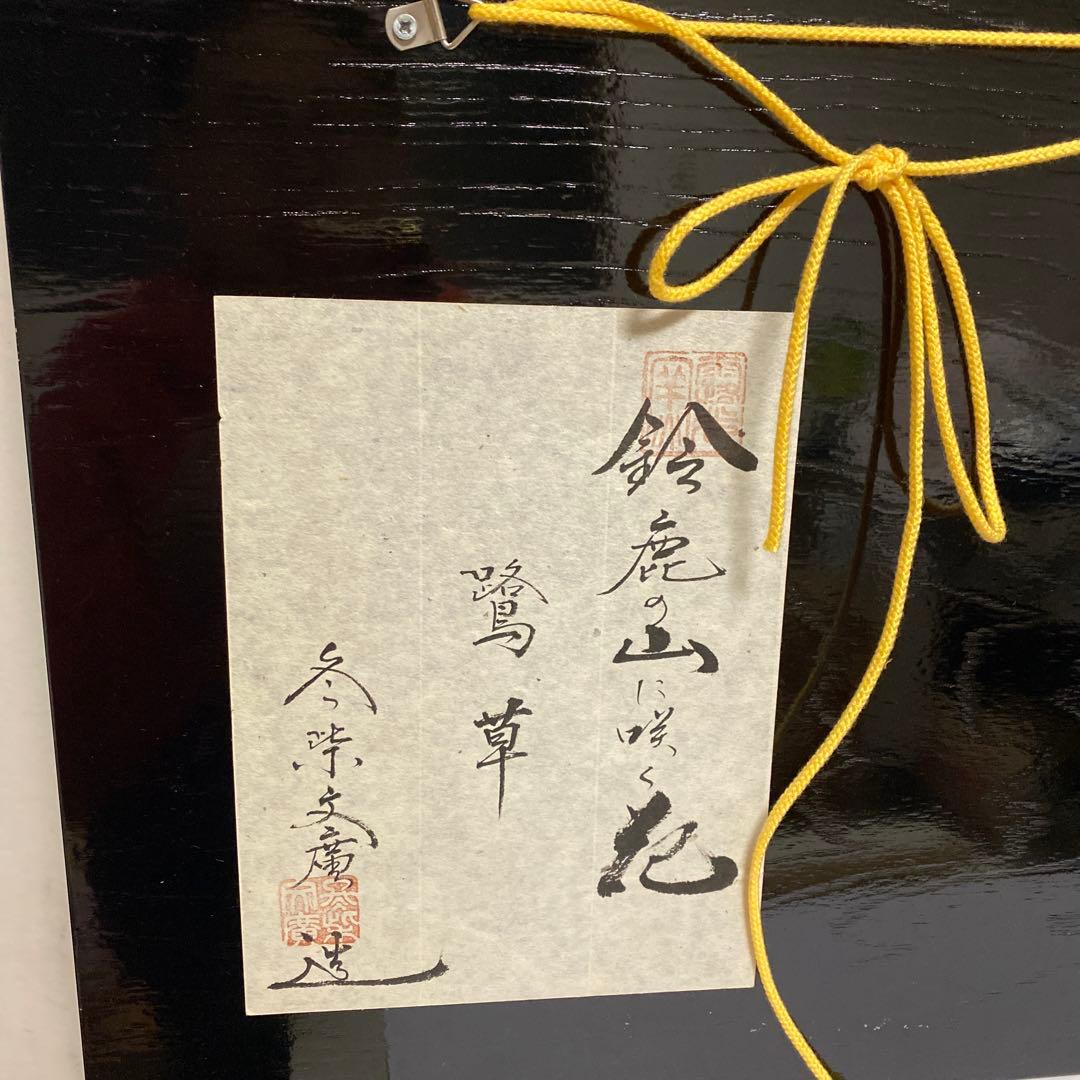 鈴鹿の山に咲く花
鷺草
冬柴文廣造